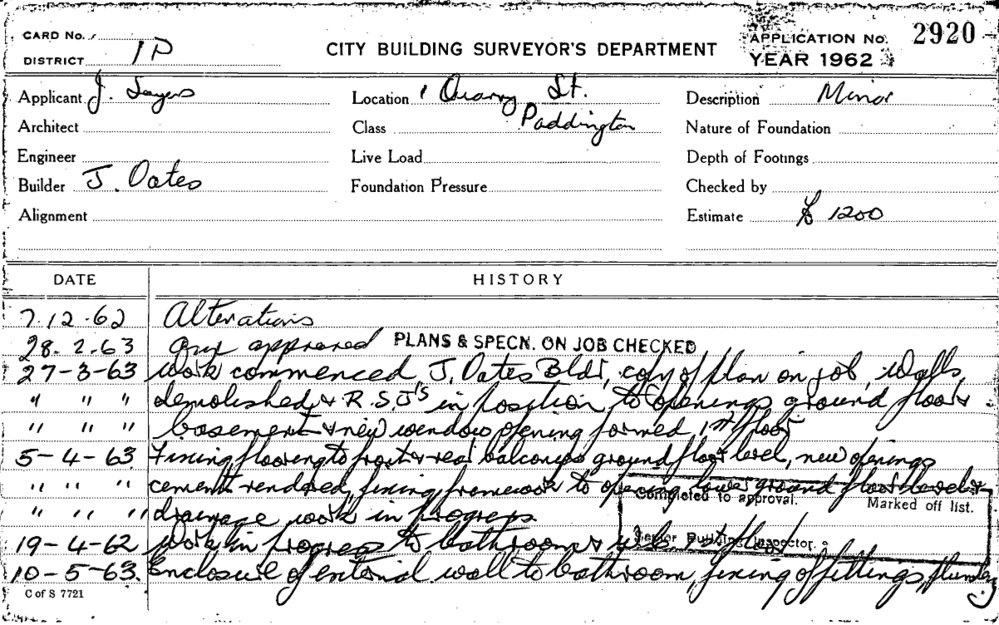 CARD No. /
DISTRICT 1P
CITY BUILDING SURVEYOR'S DEPARTMENT
APPLICATION No. 2920
YEAR 1962
Applicant J. Sayers Location 1 Quarry St. Description Minor
Architect Class Paddington Nature of Foundation
Engineer Live Load Depth of Footings
Builder J. Oates Foundation Pressure Checked by
Alignment Estimate £ 1200
DATE HISTORY
7.12.62 Alterations
28.2.63 approved PLANS & SPECN. ON JOB CHECKED
27-3-63 Work commenced J. Oates Bldr, copy of plan on job, Walls
" " " demolished & R.S.J's in position to openings ground floor &
" " " basement & new window opening formed 1st floor
5-4-63 Fixing flooring to front & rear balconys ground floor level, new openings
" " " cement rendered, fixing framework to ground floor level &
" " " drainage work in progress
Completed to approval. Marked off list.
Senior Building Inspector.
19-4-62 Work in progress to bathroom & floor
10-5-63. Enclosure of external wall to bathroom, fixing of fittings,
C of S 7721